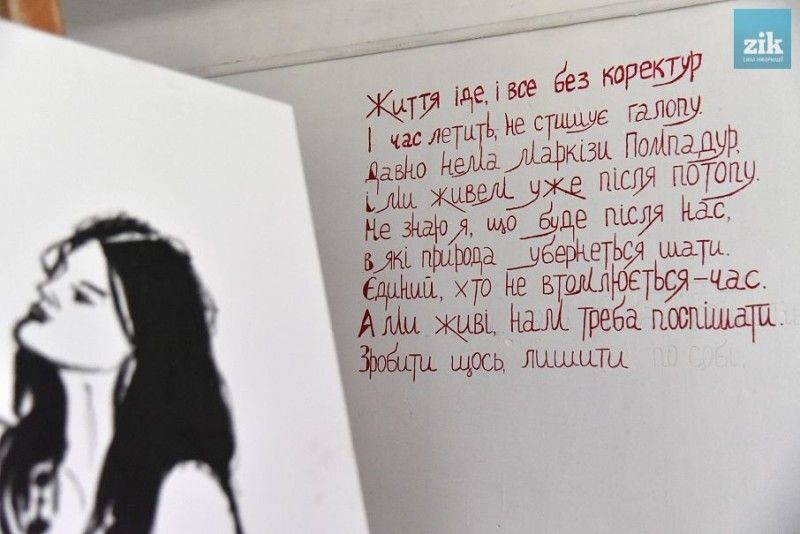 zik
сила інформації
Життя іде, і все без коректур
І час летить, не стишує галопу.
Давно нема маркізи Помпадур,
і ми живем уже після потопу.
Не знаю я, що буде після нас,
в які природа убереться шати.
Єдиний, хто не втомлюється – час.
А ми живі, нам треба поспішати.
Зробити щось, лишити по собі.